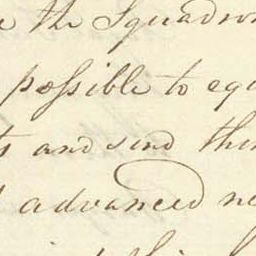 the Squadron
possible to equ
and send them
advanced ne